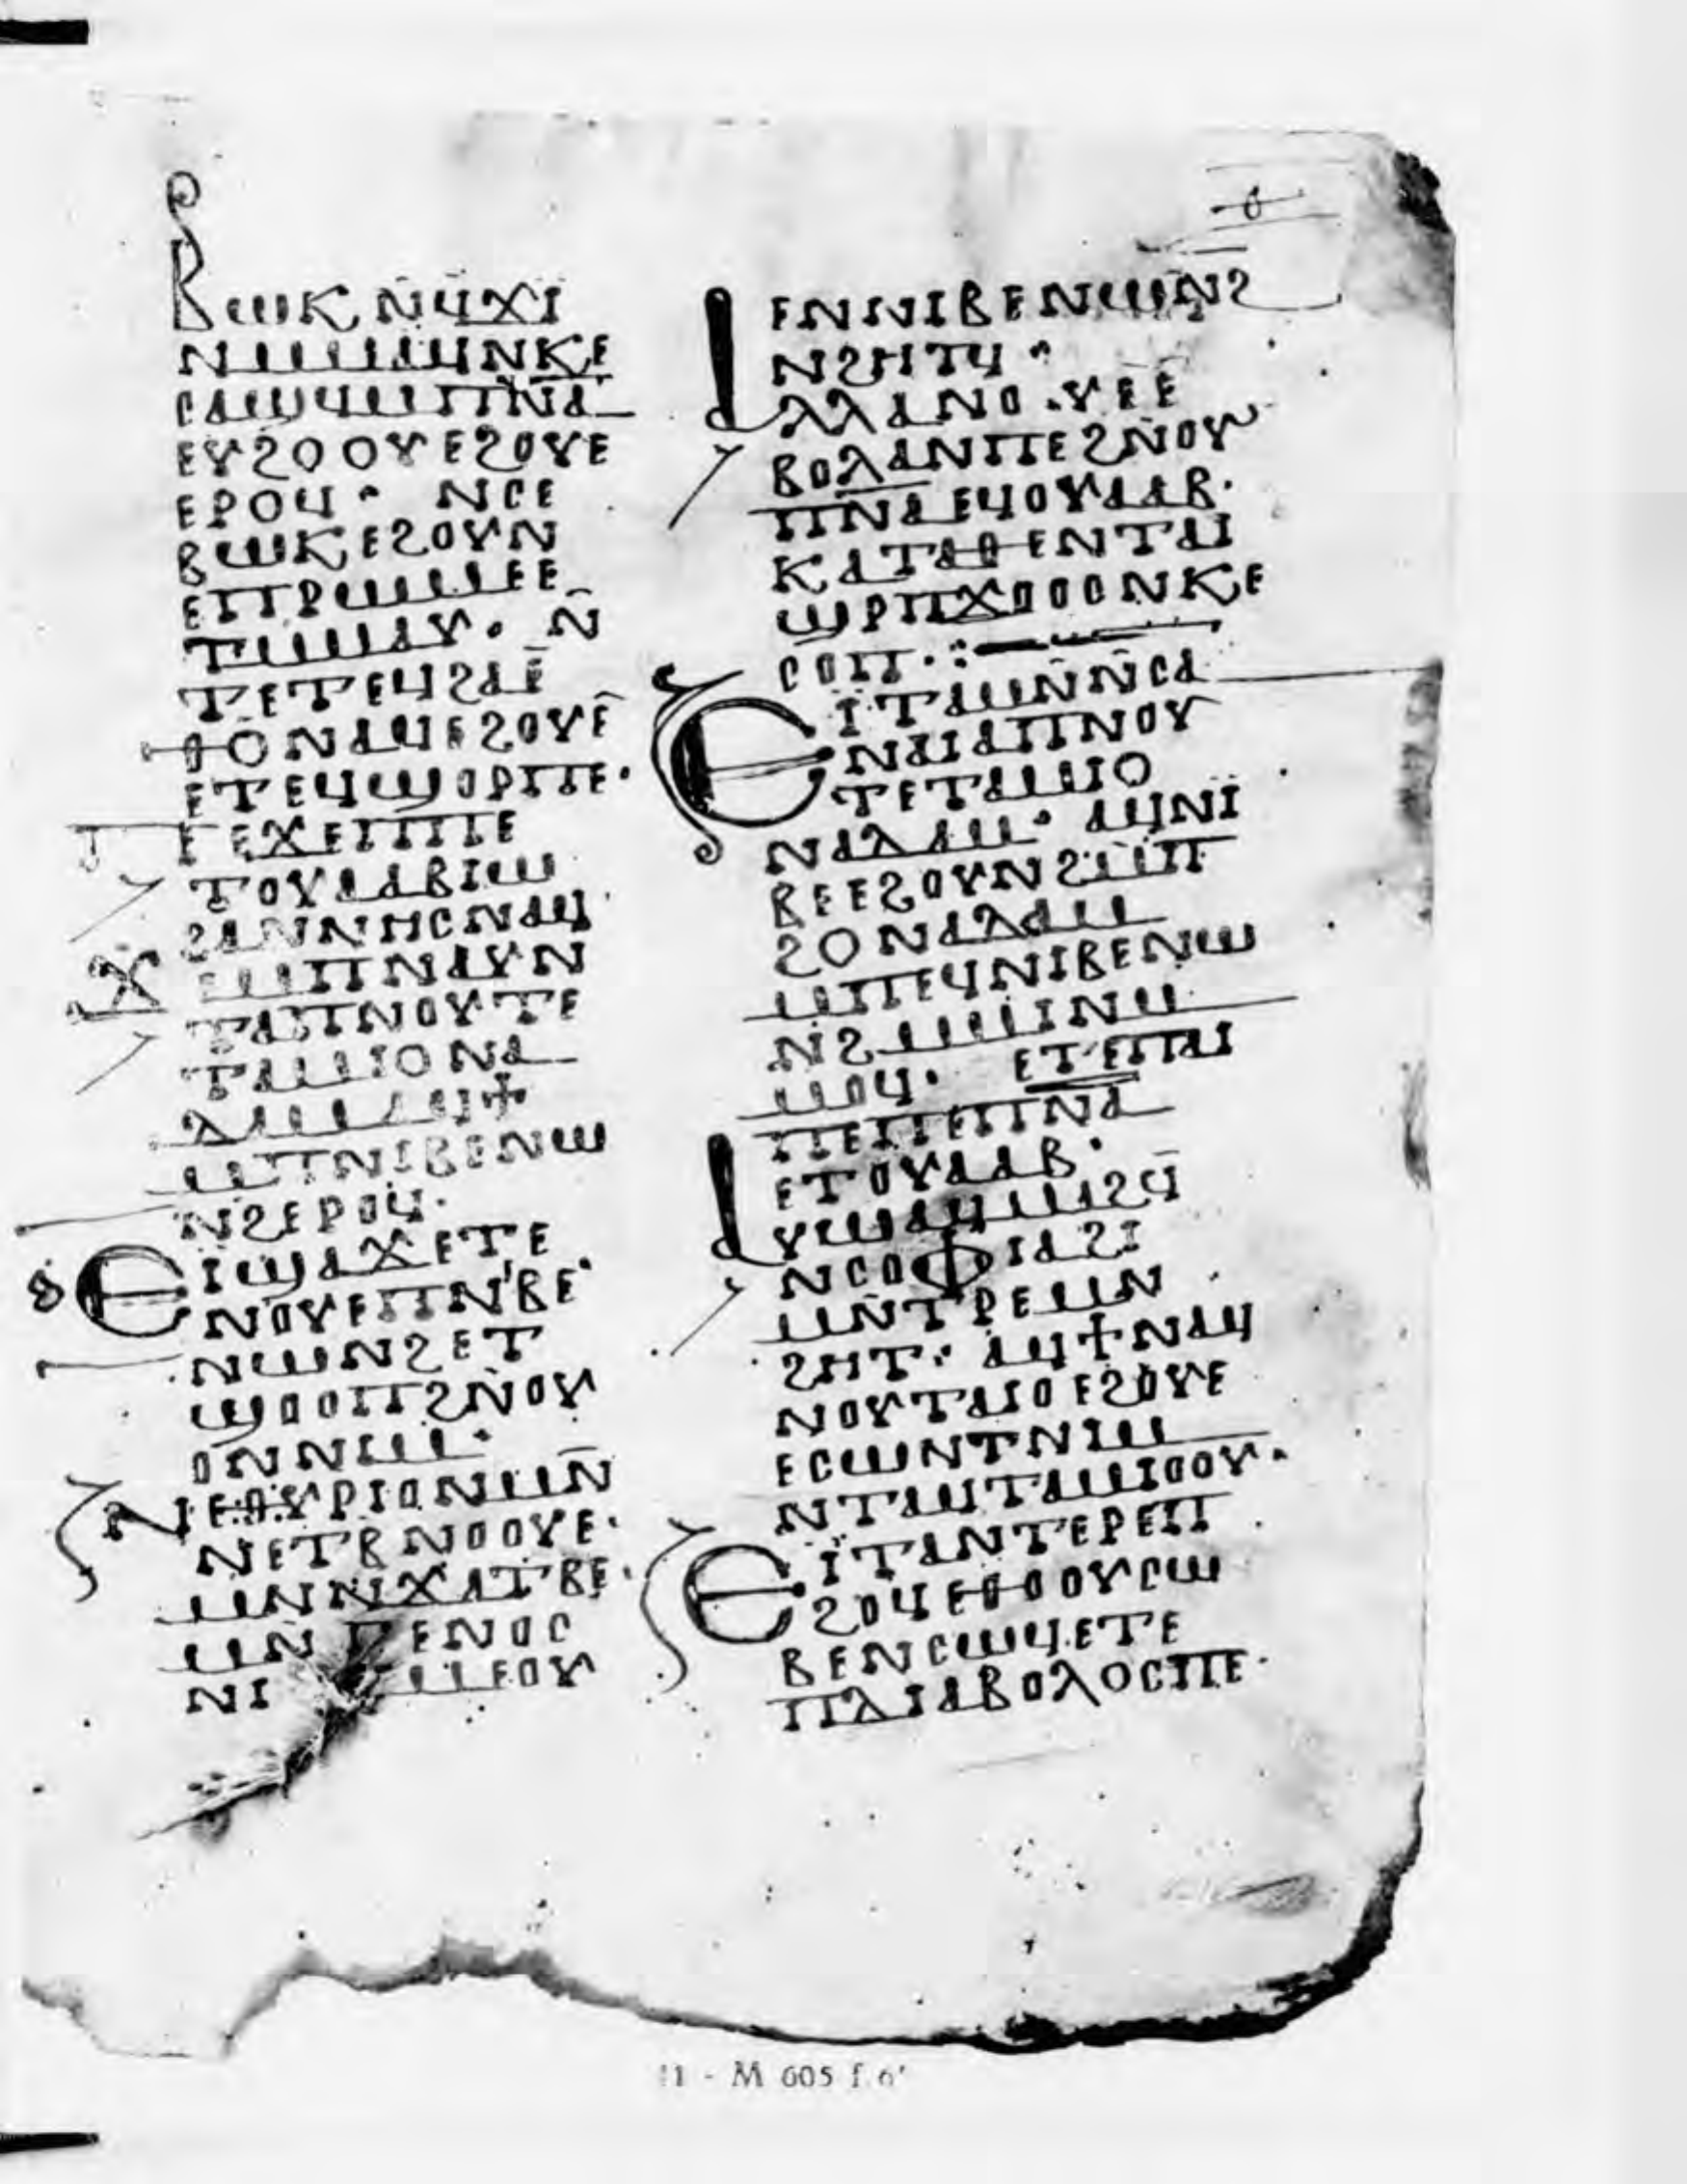 ⲃⲱⲕ ⲛ̄ϥϫⲓ
ⲛⲙⲙⲁϥⲛⲕⲉ
ⲥⲁϣϥⲙⲡⲛ̅ⲁ̅
ⲉⲩϩⲟⲟⲩⲉϩⲟⲩⲉ
ⲉⲣⲟϥ· ⲛⲥⲉ
ⲃⲱⲕⲉϩⲟⲩⲛ
ⲉⲡⲣⲱⲙⲉⲉ
ⲧⲙⲙⲁⲩ· ⲛ̄
ⲧⲉⲧⲉϥϩⲁⲉ̄
ⲑⲟⲛⲁϥⲉϩⲟⲩⲉ̄
ⲉⲧⲉϥϣⲟⲣⲡⲉ·
ⲉϫⲉⲡⲡⲉ
ⲧⲟⲩⲁⲁⲃⲓⲱ
ϩⲁⲛⲛⲏⲥⲛⲁϥ
ⲙⲡⲛⲁⲩⲛ
ⲧⲁⲡⲛⲟⲩⲧⲉ
ⲧⲁⲙⲓⲟⲛⲁ
ⲇⲁⲙⲁϥϯ
ⲙⲡⲛⲓⲃⲉⲛⲱ
ⲛϩⲉⲣⲟϥ·
ⲉⲓϣⲁϫⲉⲧⲉ
ⲛⲟⲩⲉⲡⲛⲃⲉ·
ⲛⲱⲛϩⲉⲧ
ϣⲟⲟⲡϩⲛ̄ⲟⲩ
ⲟⲛⲛⲓⲙ·
ⲛⲉⲑⲩⲣⲓⲟⲛⲙⲛ̄
ⲛⲉⲧⲃⲛⲟⲟⲩⲉ·
ⲙⲛⲛϫⲁⲧⲃⲉ·
ⲙⲛ̄ ⲅⲉⲛⲟⲥ
ⲛⲓ ⲙⲉⲟⲩ
ⲉⲛⲛⲓⲃⲉⲛⲱⲛϩ
ⲛϩⲏⲧϥ·
ⲁⲗⲗⲁⲛⲟ·ⲩⲉⲉ
ⲃⲟⲗⲁⲛⲡⲉϩⲛ̄ⲟⲩ
ⲡⲛ̅ⲁ̅ⲉϥⲟⲩⲁⲁⲃ·
ⲕⲁⲧⲁⲑⲉⲛⲧⲁⲓ
ϣⲣⲡϫⲟⲟⲥⲛⲕⲉ
ⲥⲟⲡ·:
ⲉⲓ̈ⲧⲁⲙⲛ̄ⲛ̄ⲥⲁ
ⲛⲁⲓⲁⲡⲛⲟⲩ
ⲧⲉⲧⲁⲙⲓⲟ
ⲛⲁⲇⲁⲙ· ⲁϥⲛⲓ
ⲃⲉⲉϩⲟⲩⲛϩⲙⲡ
ϩⲟⲛⲁⲇⲁⲙ
ⲙⲡⲉϥⲛⲓⲃⲉⲛⲱ
ⲛϩ
ⲙⲟϥ· ⲉⲧⲉⲡⲁⲓ
ⲡⲉⲡⲉⲡⲛ̅ⲁ̅
ⲉⲧⲟⲩⲁⲁⲃ·
ⲁⲩⲱⲁϥⲙⲁϩϥ̄
ⲛⲥⲟⲫⲓⲁϩⲓ
ⲙⲛ̄ⲧⲣⲉⲙⲛ
ϩⲏⲧ· ⲁϥϯⲛⲁϥ
ⲛⲟⲩⲧⲁⲓⲟⲉϩⲟⲩⲉ
ⲉⲥⲱⲛⲧⲛⲓⲙ
ⲛⲧⲁϥⲧⲁⲙⲓⲟⲟⲩ·
ⲉⲓ̈ⲧⲁⲛⲧⲉⲣⲉⲡ
ϩⲟϥⲉⲑⲟⲟⲩⲥⲱ
ⲃⲉⲛⲥⲱϥⲉⲧⲉ
ⲡⲇⲓⲁⲃⲟⲗⲟⲥⲡⲉ·
M 605 f.6ʳ